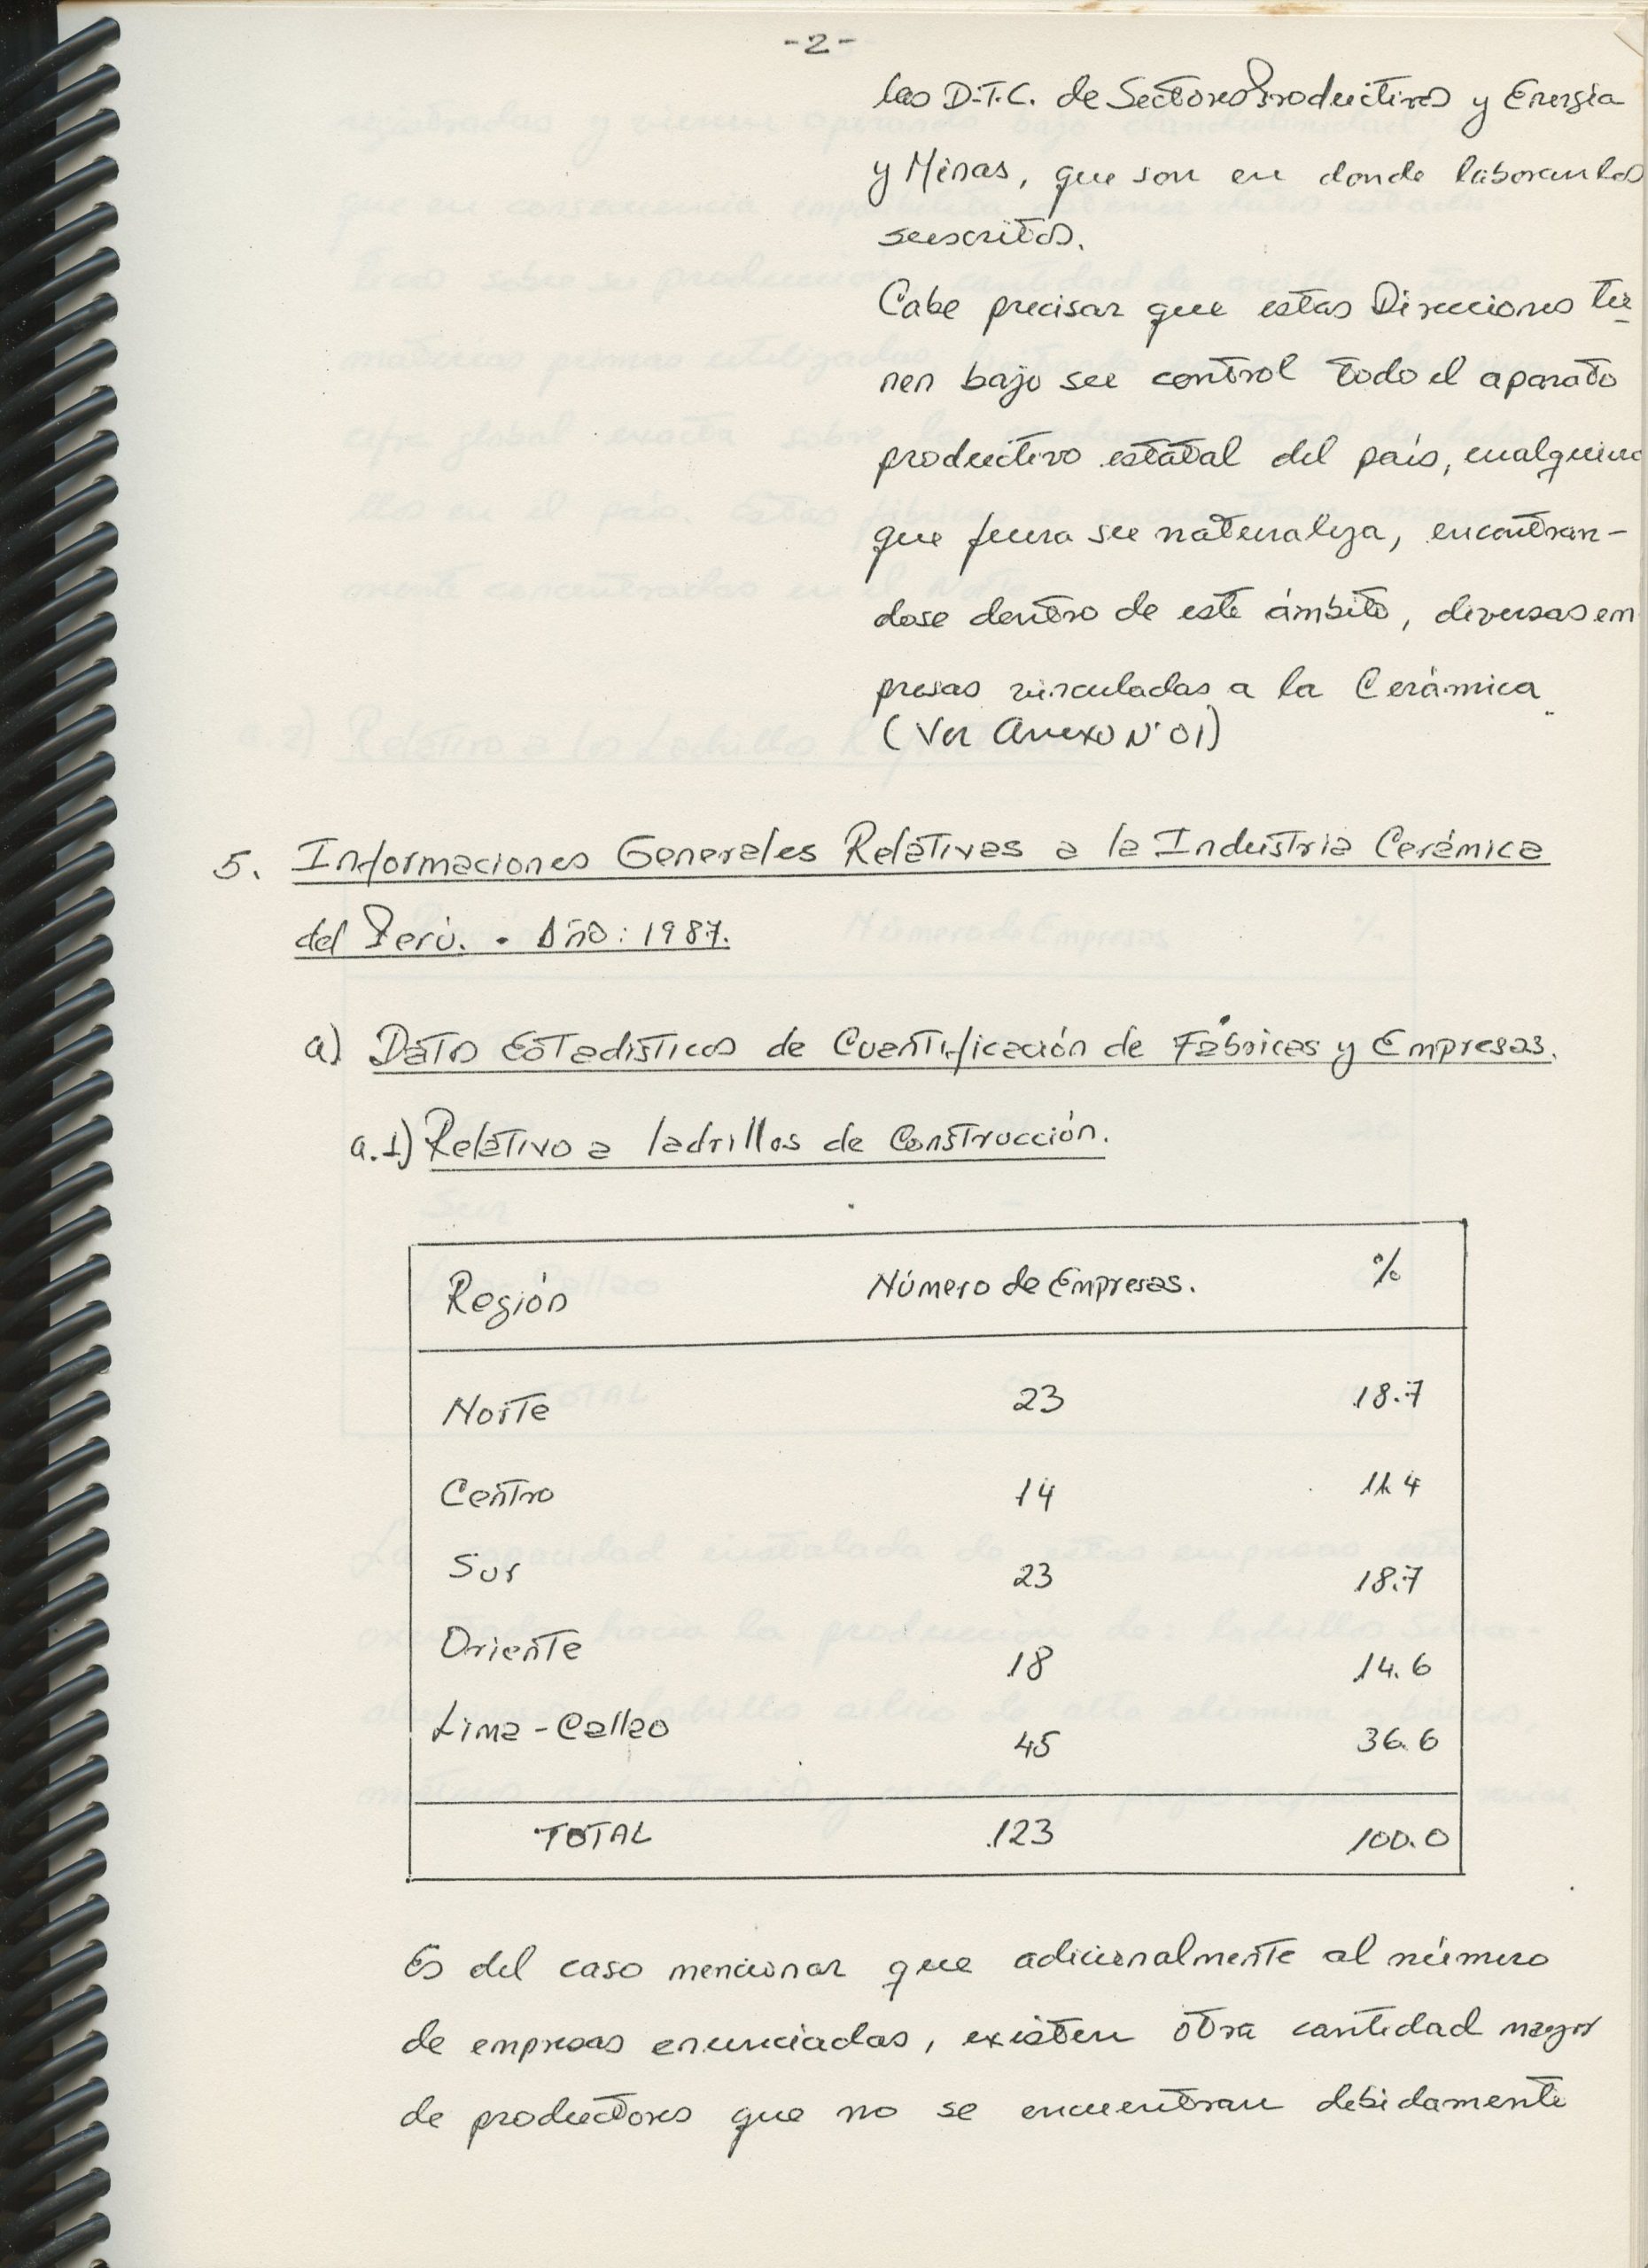 -2-
las D.T.C. de Sectores Productivos y Energía
y Minas, que son en donde laboran los
suscritos.
Cabe precisar que estas Direcciones tie
nen bajo su control todo el aparato
productivo estatal del país, cualquiera
que fuera su naturaleza, encontran-
dose dentro de este ámbito, diversas em
presas vinculadas a la Cerámica
(Ver Anexo N° 01)
5. Informaciones Generales Relativas a la Industria Cerámica
del Perú. - Año: 1987.
a) Datos Estadísticos de Cuantificación de Fábricas y Empresas.
a.1) Relativo a ladrillos de Construcción.
Región Número de Empresas. %
Norte 23 18.7
Centro 14 11.4
Sur 23 18.7
Oriente 18 14.6
Lima-Callao 45 36.6
TOTAL 123 100.0
Es del caso mencionar que adicionalmente al número
de empresas enunciadas, existen otra cantidad mayor
de productores que no se encuentran debidamente